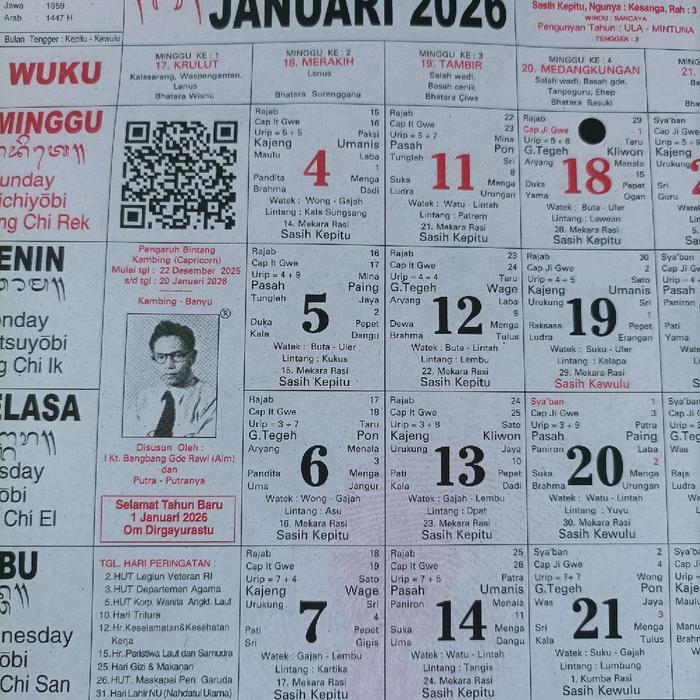 Jawa 1959
Arab 1447 H
Bulan Tengger : Kepitu - Kewulu
JANUARI 2026
Sasih Kepitu, Ngunya : Kesanga, Rah : 3
WINDU : SANCAYA
Pengunyan Tahun : ULA - MINTUNA
TENGGEK : 3
WUKU
MINGGU KE : 1
17. KRULUT
Kalasarang, Waspenganten,
Lanus
Bhatara Wisnu
MINGGU KE : 2
18. MERAKIH
Lanus
Bhatara Surenggana
MINGGU KE : 3
19. TAMBIR
Salah wadi,
Basah cenik
Bhatara Çiwa
MINGGU KE : 4
20. MEDANGKUNGAN
Salah wadi, Basah gde,
Tanpeguru, Ehep
Bhatara Basuki
MING
21.
MINGGU
unday
ichiyōbi
ng Chi Rek
Rajab 15
Cap It Gwe 16
Urip = 5 + 5 Paksi
Kajeng Umanis
Maulu Laba
1
4
Pandita Menga
Brahma Dadi
Watek : Wong - Gajah
Lintang : Kala Sungsang
14. Mekara Rasi
Sasih Kepitu
Rajab 22
Cap It Gwe 23
Urip = 5 + 7 Mina
Pasah Pon
Tungleh Sri
8
11
Suka Menga
Ludra Urungan
Watek : Watu - Lintah
Lintang : Patrem
21. Mekara Rasi
Sasih Kepitu
Rajab 29
Cap Ji Gwe 1
Urip = 5 + 8 Taru
G.Tegeh Kliwon
Aryang Menala
15
18
Duka Pepet
Yama Ogan
Watek : Buta - Uler
Lintang : Lawean
28. Mekara Rasi
Sasih Kepitu
Sya'ban
Cap Ji G
Urip = 5
Kajeng
Urukung
Sri
Guru
ENIN
onday
tsuyōbi
g Chi Ik
Pengaruh Bintang
Kambing (Capricorn)
Mulai tgl : 22 Desember 2025
s/d tgl : 20 Januari 2026
Kambing - Banyu
®
Disusun Oleh :
I Kt. Bangbang Gde Rawi (Alm)
dan
Putra - Putranya
Selamat Tahun Baru
1 Januari 2026
Om Dirgayurastu
Rajab 16
Cap It Gwe 17
Urip = 4 + 9 Mina
Pasah Paing
Tungleh Jaya
2
5
Duka Pepet
Kala Dangu
Watek : Buta - Uler
Lintang : Kukus
15. Mekara Rasi
Sasih Kepitu
Rajab 23
Cap It Gwe 24
Urip = 4 + 4 Taru
G.Tegeh Wage
Aryang Laba
9
12
Dewa Menga
Brahma Tulus
Watek : Buta - Lintah
Lintang : Lembu
22. Mekara Rasi
Sasih Kepitu
Rajab 30
Cap Ji Gwe 2
Urip = 4 + 5 Sato
Kajeng Umanis
Urukung Sri
1
19
Raksasa Pepet
Ludra Erangan
Watek : Suku - Uler
Lintang : Kelapa
29. Mekara Rasi
Sasih Kewulu
Sya'ban
Cap Ji G
Urip = 4
Pasah
Paniron
Pati
Yama
ELASA
sday
ōbi
Chi El
Rajab 17
Cap It Gwe 18
Urip = 3 + 7 Taru
G.Tegeh Pon
Aryang Menala
3
6
Pandita Menga
Uma Jangur
Watek : Wong - Gajah
Lintang : Asu
16. Mekara Rasi
Sasih Kepitu
Rajab 24
Cap It Gwe 25
Urip = 3 + 8 Sato
Kajeng Kliwon
Urukung Jaya
10
13
Pati Pepet
Kala Dadi
Watek : Gajah - Lembu
Lintang : Dpat
23. Mekara Rasi
Sasih Kepitu
Sya'ban 1
Cap Ji Gwe 3
Urip = 3 + 9 Patra
Pasah Paing
Paniron Laba
2
20
Suka Menga
Brahma Urungan
Watek : Watu - Lintah
Lintang : Yuyu
30. Mekara Rasi
Sasih Kewulu
Sya'ban
Cap Ji G
Urip = 3
G.Teg
Was
Raja
Ludra
BU
nesday
ōbi
Chi San
TGL. HARI PERINGATAN :
2. HUT Legiun Veteran RI
3. HUT Departemen Agama
5. HUT Korp. Wanita Angkt. Laut
10. Hari Tritura
12. Hr.Keselamatan&Kesehatan
Kerja
15. Hr. Peristiwa Laut dan Samudra
25. Hari Gizi & Makanan
26. HUT. Maskapai Pen. Garuda
31. Hari Lahir NU (Nahdatul Ulama)
Rajab 18
Cap It Gwe 19
Urip = 7 + 4 Sato
Kajeng Wage
Urukung Sri
4
7
Pati Pepet
Sri Gigis
Watek : Gajah - Lembu
Lintang : Kartika
17. Mekara Rasi
Sasih Kepitu
Rajab 25
Cap It Gwe 26
Urip = 7 + 5 Patra
Pasah Umanis
Paniron Menala
11
14
Suka Menga
Uma Dangu
Watek : Watu - Lintah
Lintang : Tangis
24. Mekara Rasi
Sasih Kepitu
Sya'ban 2
Cap Ji Gwe 4
Urip = 7+ 7 Wong
G.Tegeh Pon
Was Jaya
3
21
Sri Pepet
Kala Tulus
Watek : Suku - Gajah
Lintang : Lumbung
1. Kumba Rasi
Sasih Kewulu
Sya'ban
Cap Ji
Urip =
Kajen
Maulu
Manu
Brahm